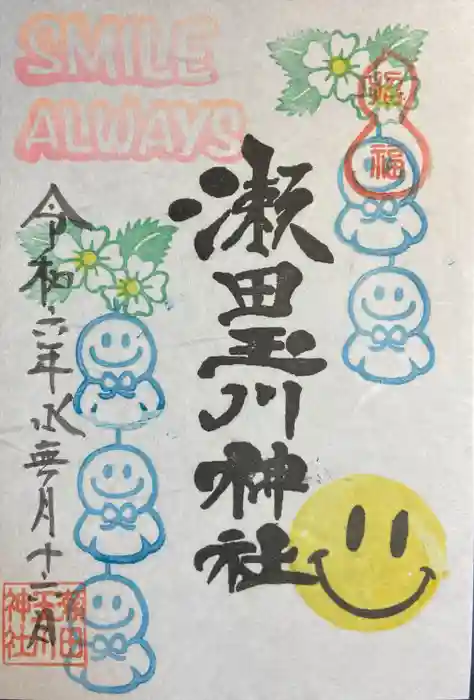 SMILE
ALWAYS
招
福
瀬田玉川神社
令和六年水無月十二日
瀬田
玉川
神社